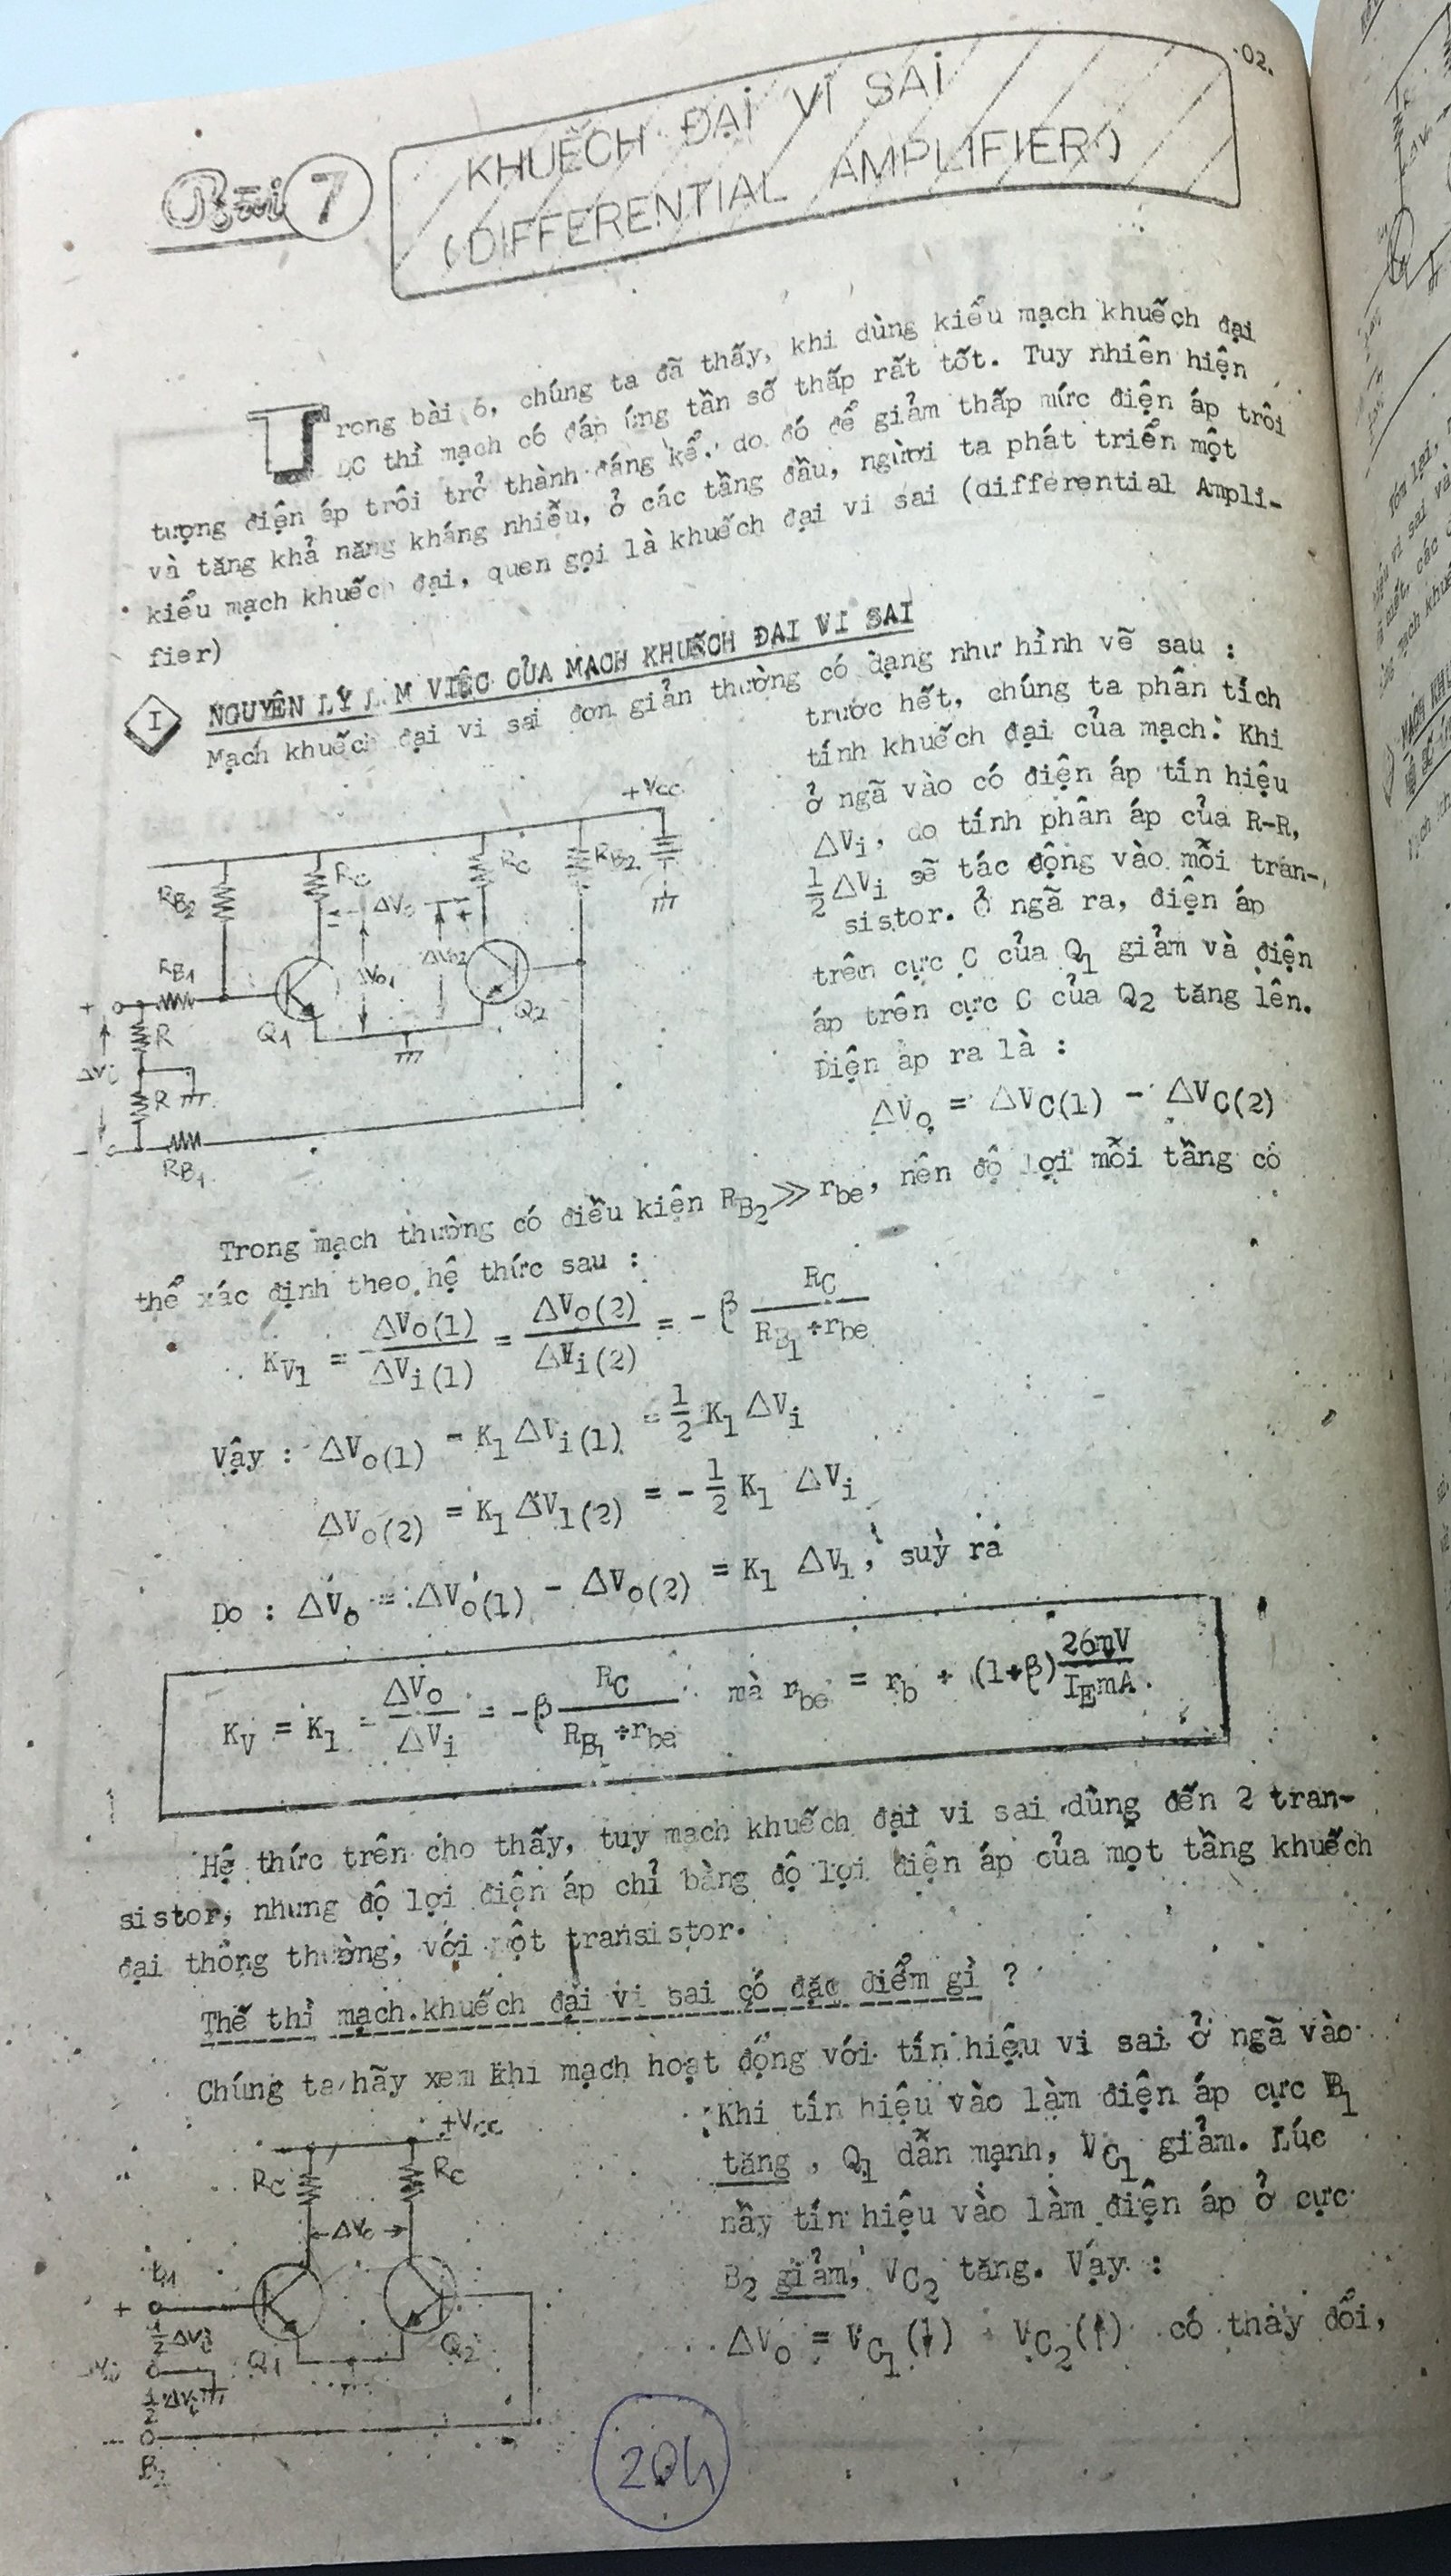 .02.
Bài 7
KHUẾCH ĐẠI VI SAI
(DIFFERENTIAL AMPLIFIER)
Trong bài 6, chúng ta đã thấy, khi dùng kiểu mạch khuếch đại
DC thì mạch có đáp ứng tần số thấp rất tốt. Tuy nhiên hiện
tượng điện áp trôi trở thành đáng kể. do đó để giảm thấp mức điện áp trôi
và tăng khả năng kháng nhiễu, ở các tầng đầu, người ta phát triển một
kiểu mạch khuếch đại, quen gọi là khuếch đại vi sai (differential Ampli-
fier)
I NGUYÊN LÝ LÀM VIỆC CỦA MẠCH KHUẾCH ĐẠI VI SAI
Mạch khuếch đại vi sai đơn giản thường có dạng như hình vẽ sau :
trước hết, chúng ta phân tích
tính khuếch đại của mạch: Khi
ở ngã vào có điện áp tín hiệu
△Vi, do tính phân áp của R-R,
1/2 △Vi sẽ tác động vào mỗi tran-
sistor. Ở ngã ra, điện áp
trên cực C của Q1 giảm và điện
áp trên cực C của Q2 tăng lên.
Điện áp ra là :
△Vo = △VC(1) - △VC(2)
+Vcc
RB2 RC RC RB2
△Vo
- +
RB1 △Vo1 △Vo2
+ Q1 Q2
R
△Vi
R
-
RB1
Trong mạch thường có điều kiện RB2 ≫ rbe, nên độ lợi mỗi tầng có
thể xác định theo hệ thức sau :
KV1 = △Vo(1)/△Vi(1) = △Vo(2)/△Vi(2) = - β RC/(RB1 + rbe)
Vậy : △Vo(1) = K1 △Vi(1) = 1/2 K1 △Vi
△Vo(2) = K1 △V1(2) = - 1/2 K1 △Vi
Do : △Vo = △Vo(1) - △Vo(2) = K1 △V1, suy ra
KV = K1 = △Vo/△Vi = -β RC/(RB1 + rbe) mà rbe = rb + (1+β) 26mV/IEmA .
Hệ thức trên cho thấy, tuy mạch khuếch đại vi sai dùng đến 2 tran-
sistor, nhưng độ lợi điện áp chỉ bằng độ lợi điện áp của một tầng khuếch
đại thông thường, với một transistor.
Thế thì mạch khuếch đại vi sai có đặc điểm gì ?
Chúng ta hãy xem khi mạch hoạt động với tín hiệu vi sai ở ngã vào
Khi tín hiệu vào làm điện áp cực B1
tăng , Q1 dẫn mạnh, VC1 giảm. Lúc
nầy tín hiệu vào làm điện áp ở cực
B2 giảm, VC2 tăng. Vậy :
△Vo = VC1(↓) VC2(↑) có thay đổi,
+Vcc
RC RC
△Vo
+
1/2 △Vi
Q1 Q2
1/2 △Vi
-
B2
204